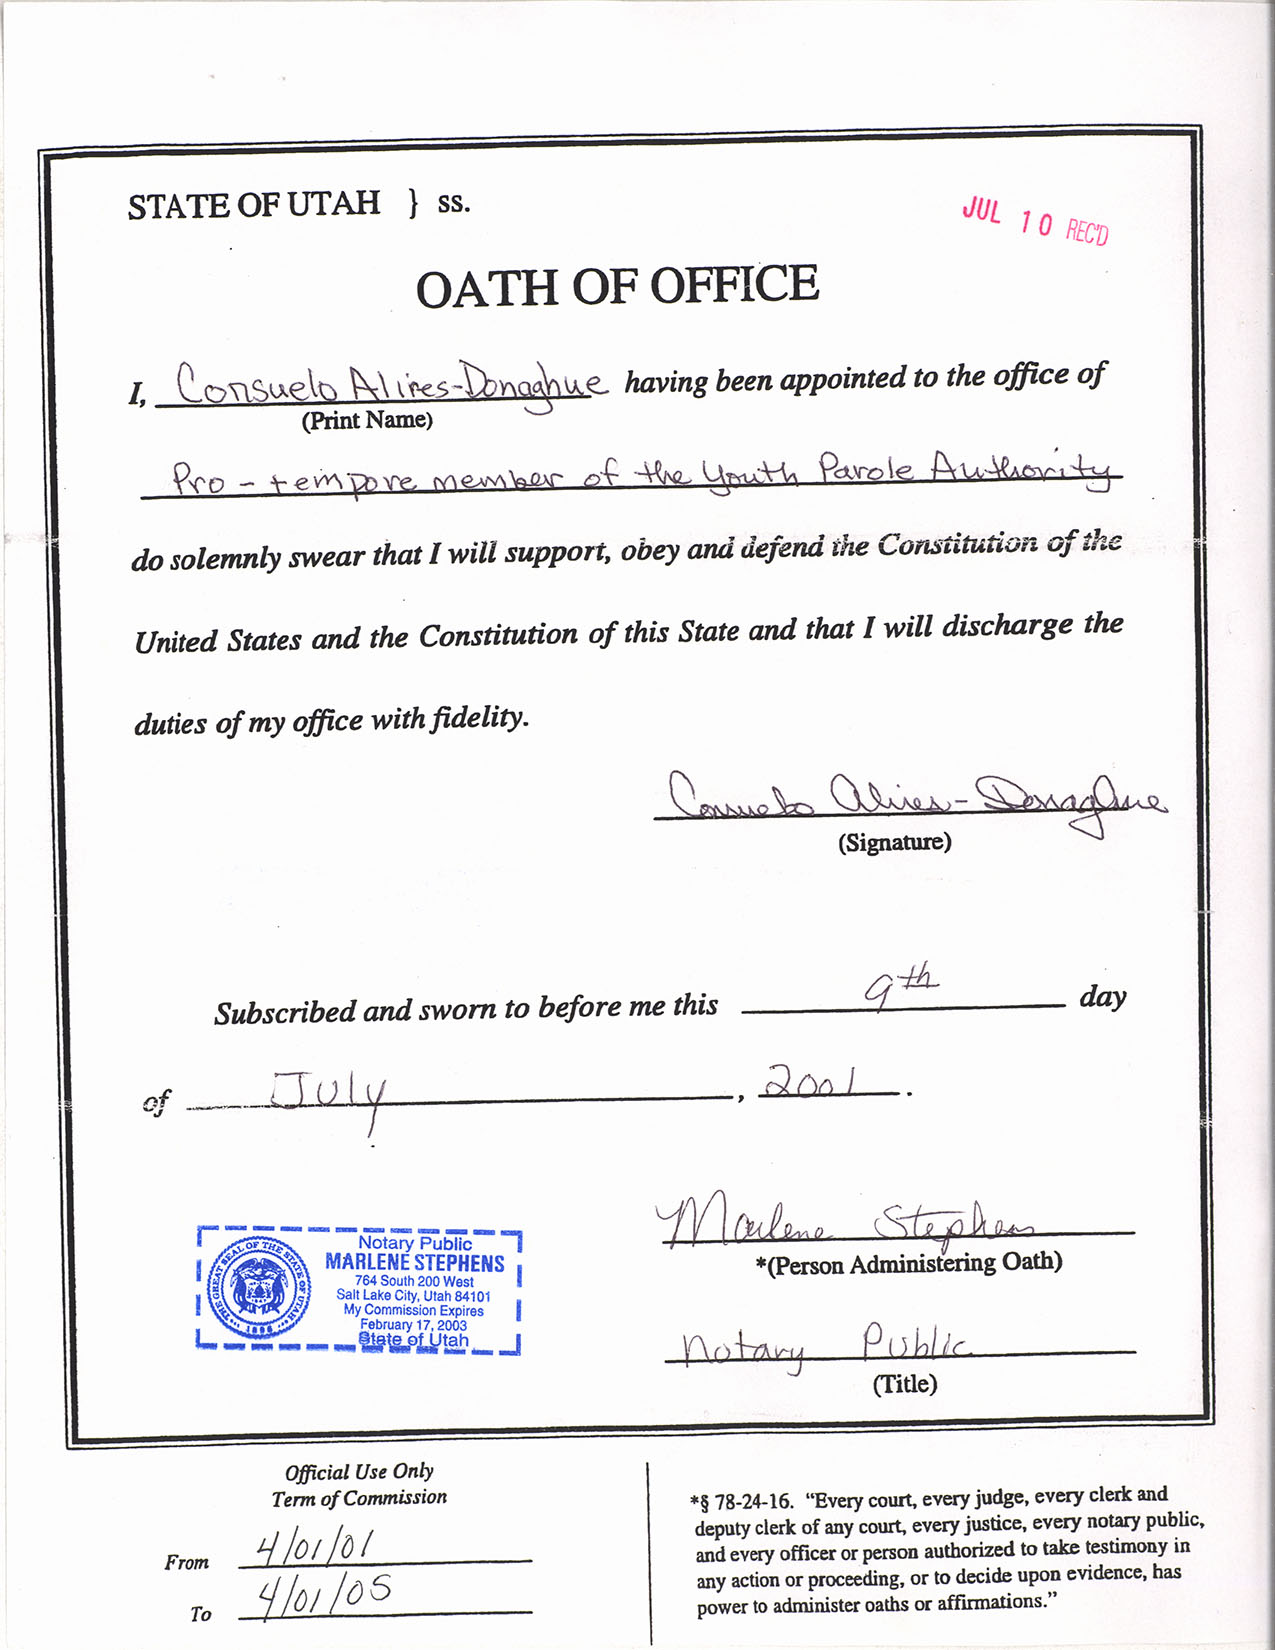 STATE OF UTAH } ss.
JUL 10 REC'D
OATH OF OFFICE
I, Consuelo Alires-Donaghue having been appointed to the office of
(Print Name)
Pro-tempore member of the Youth Parole Authority
do solemnly swear that I will support, obey and defend the Constitution of the
United States and the Constitution of this State and that I will discharge the
duties of my office with fidelity.
Consuelo Alires-Donaghue
(Signature)
Subscribed and sworn to before me this 9th day
of July, 2001.
Marlene Stephens
*(Person Administering Oath)
Notary Public
(Title)
THE GREAT SEAL OF THE STATE OF UTAH
1896
Notary Public
MARLENE STEPHENS
764 South 200 West
Salt Lake City, Utah 84101
My Commission Expires
February 17, 2003
State of Utah
Official Use Only
Term of Commission
From 4/01/01
To 4/01/05
*§ 78-24-16. “Every court, every judge, every clerk and
deputy clerk of any court, every justice, every notary public,
and every officer or person authorized to take testimony in
any action or proceeding, or to decide upon evidence, has
power to administer oaths or affirmations.”